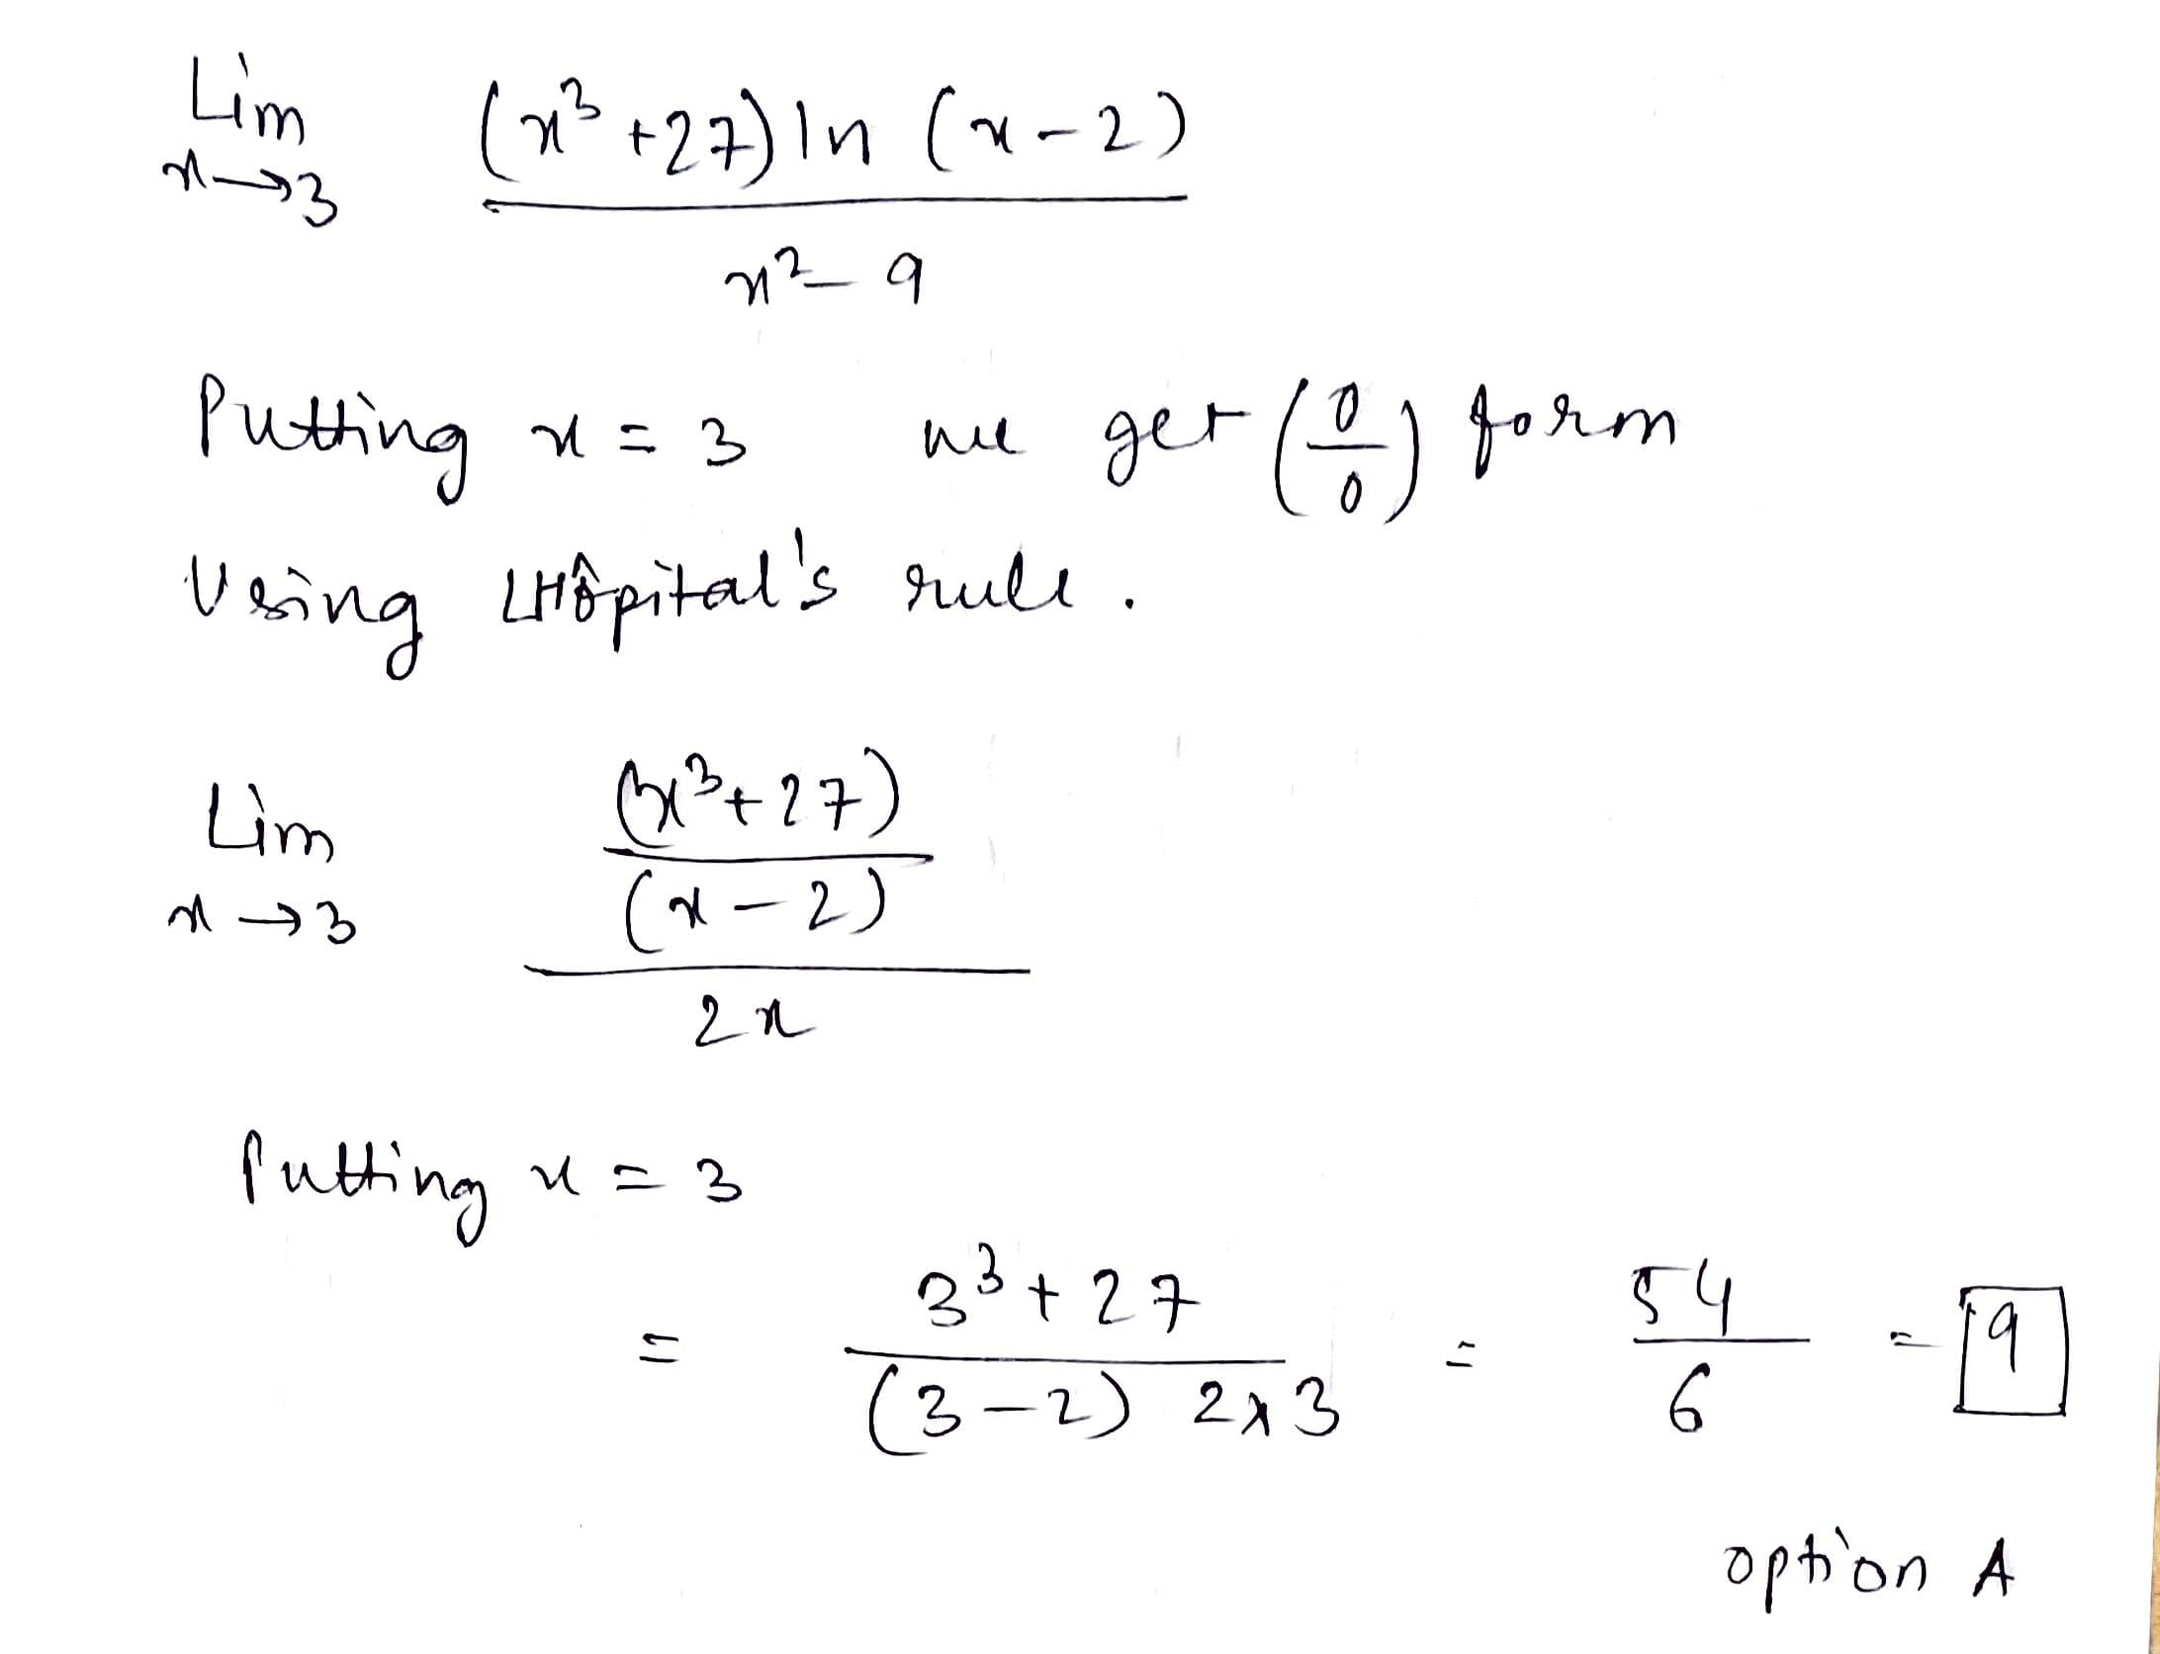 Lim (x³ + 27) ln (x - 2)
x→3
x² - 9
Putting x = 3 we get (0/0) form
Using LHôpital's rule.
Lim (x³ + 27)
(x - 2)
x→3
2x
Putting x = 3
= 3³ + 27 / (3 - 2) 2×3 = 54 / 6 = 9
option A